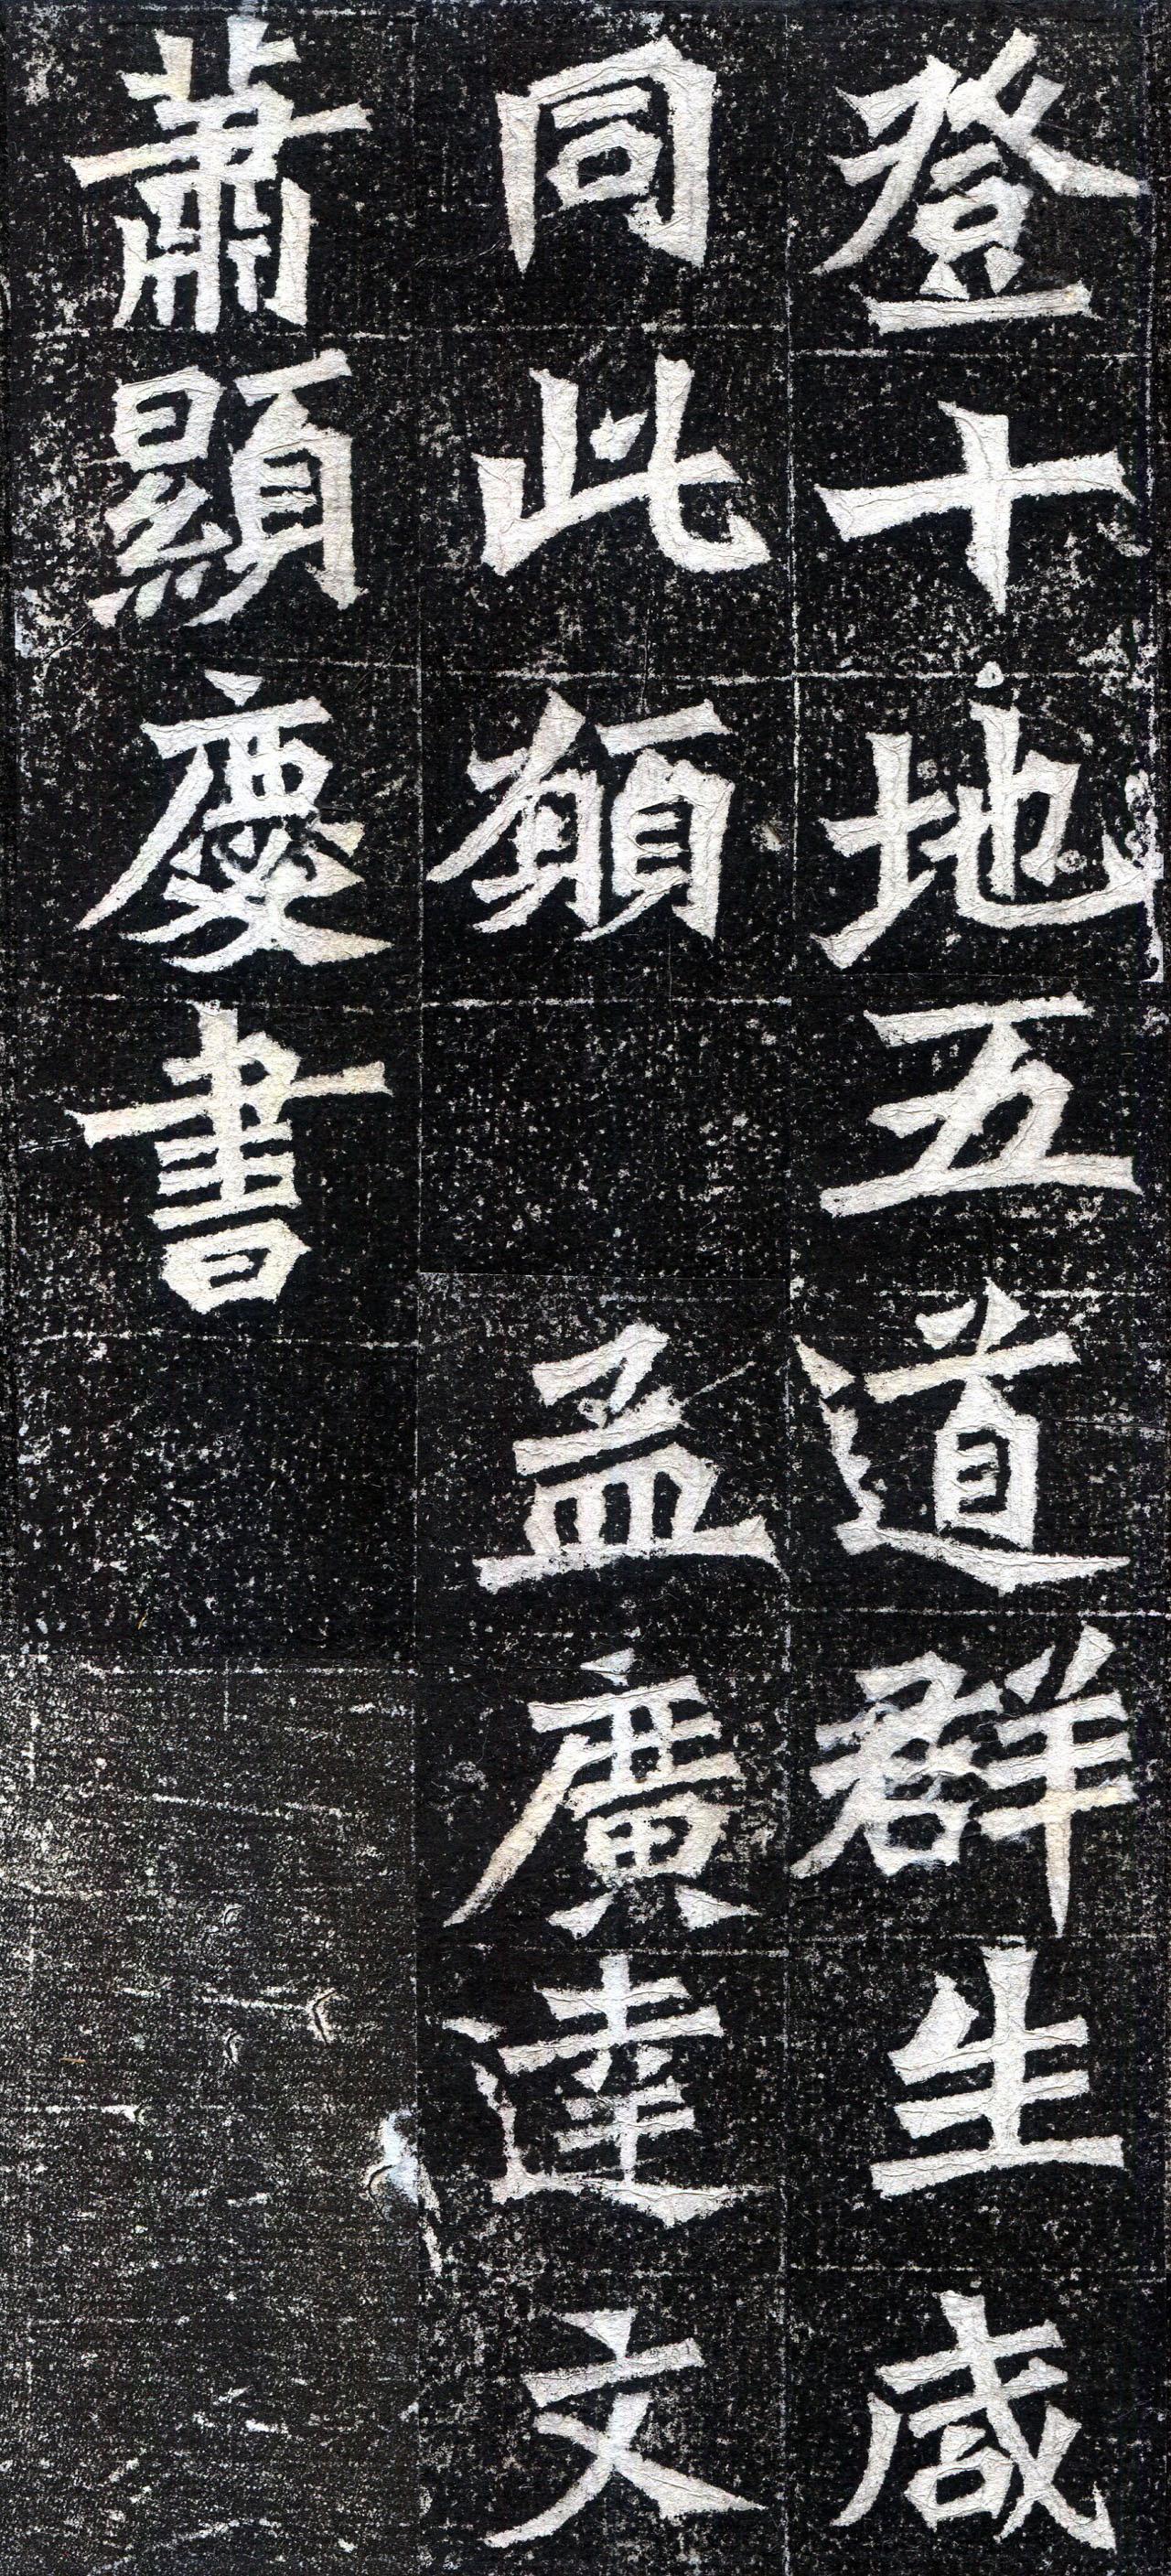 登十地五道群生咸
同此願 孟廣達文
蕭顯慶書